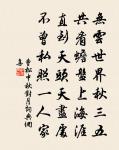 無雲世界秋三五
共看蟾盤上海涯
直到天頭天盡處
不曾私照一人家
曹松中秋對月詞典網
集